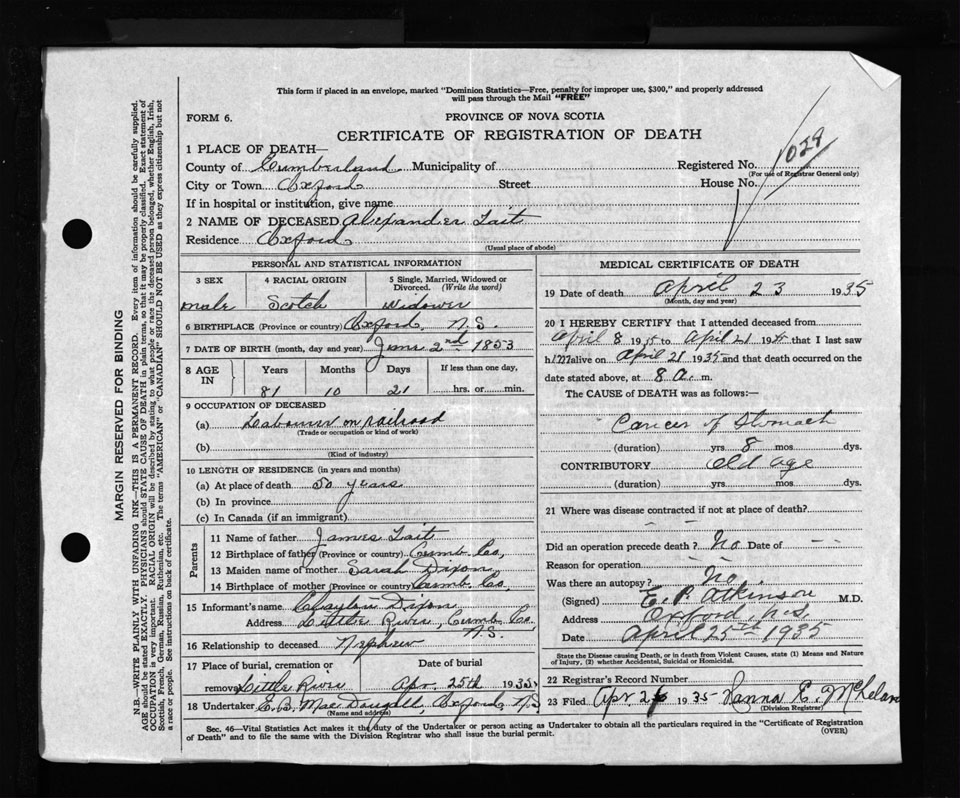 This form if placed in an envelope, marked "Dominion Statistics—Free, penalty for improper use, $300," and properly addressed
will pass through the Mail "FREE"
FORM 6.
PROVINCE OF NOVA SCOTIA
CERTIFICATE OF REGISTRATION OF DEATH
1 PLACE OF DEATH—
County of Cumberland Municipality of Registered No. 1029
(For use of Registrar General only)
City or Town Oxford Street House No.
If in hospital or institution, give name
2 NAME OF DECEASED Alexander Tait
Residence Oxford
(Usual place of abode)
PERSONAL AND STATISTICAL INFORMATION
3 SEX 4 RACIAL ORIGIN 5 Single, Married, Widowed or Divorced. (Write the word)
male Scotch Widower
6 BIRTHPLACE (Province or country) Oxford, N.S.
7 DATE OF BIRTH (month, day and year) June 2nd 1853
8 AGE IN Years Months Days If less than one day,
81 10 21 hrs. or min.
9 OCCUPATION OF DECEASED
(a) Labourer on railroad
(Trade or occupation or kind of work)
(b)
(Kind of industry)
10 LENGTH OF RESIDENCE (in years and months)
(a) At place of death 50 years
(b) In province
(c) In Canada (if an immigrant)
Parents
11 Name of father James Tait
12 Birthplace of father (Province or country) Cumb. Co,
13 Maiden name of mother Sarah Dixon
14 Birthplace of mother (Province or country) Cumb. Co,
15 Informant's name Clayton Dixon
Address Little River, Cumb. Co.
N.S.
16 Relationship to deceased Nephew
17 Place of burial, cremation or Date of burial
removal Little River Apr. 25th 1935
18 Undertaker E.B. MacDougall, Oxford, N.S.
(Name and address)
MEDICAL CERTIFICATE OF DEATH
19 Date of death April 23 1935
(Month, day and year)
20 I HEREBY CERTIFY that I attended deceased from
April 8 1935 to April 21 1935 that I last saw
him alive on April 21 1935 and that death occurred on the
date stated above, at 8 a. m.
The CAUSE of DEATH was as follows:—
Cancer of Stomach
(duration) yrs. 8 mos. dys.
CONTRIBUTORY Old age
(duration) yrs. mos. dys.
21 Where was disease contracted if not at place of death?
— —
Did an operation precede death? No Date of — —
Reason for operation
Was there an autopsy? No.
(Signed) E. P. Atkinson M.D.
Address Oxford, N.S.
Date April 25th 1935
State the Disease causing Death, or in death from Violent Causes, state (1) Means and Nature
of Injury, (2) whether Accidental, Suicidal or Homicidal.
22 Registrar's Record Number
23 Filed Apr 26 1935 E.
(Division Registrar)
Sec. 46—Vital Statistics Act makes it the duty of the Undertaker or person acting as Undertaker to obtain all the particulars required in the "Certificate of Registration
of Death" and to file the same with the Division Registrar who shall issue the burial permit.
(OVER)
MARGIN RESERVED FOR BINDING
N.B.—WRITE PLAINLY WITH UNFADING INK—THIS IS A PERMANENT RECORD. Every item of information should be carefully supplied.
AGE should be stated EXACTLY. PHYSICIANS should STATE CAUSE OF DEATH in plain terms, so that it may be properly classified. Exact statement of
OCCUPATION is very important. RACIAL ORIGIN will be described by stating to what people or race the deceased person belonged, whether English, Irish,
Scottish, French, German, Russian, Ruthenian, etc. The terms "AMERICAN" or "CANADIAN" SHOULD NOT BE USED as they express citizenship but not
a race or people. See instructions on back of certificate.